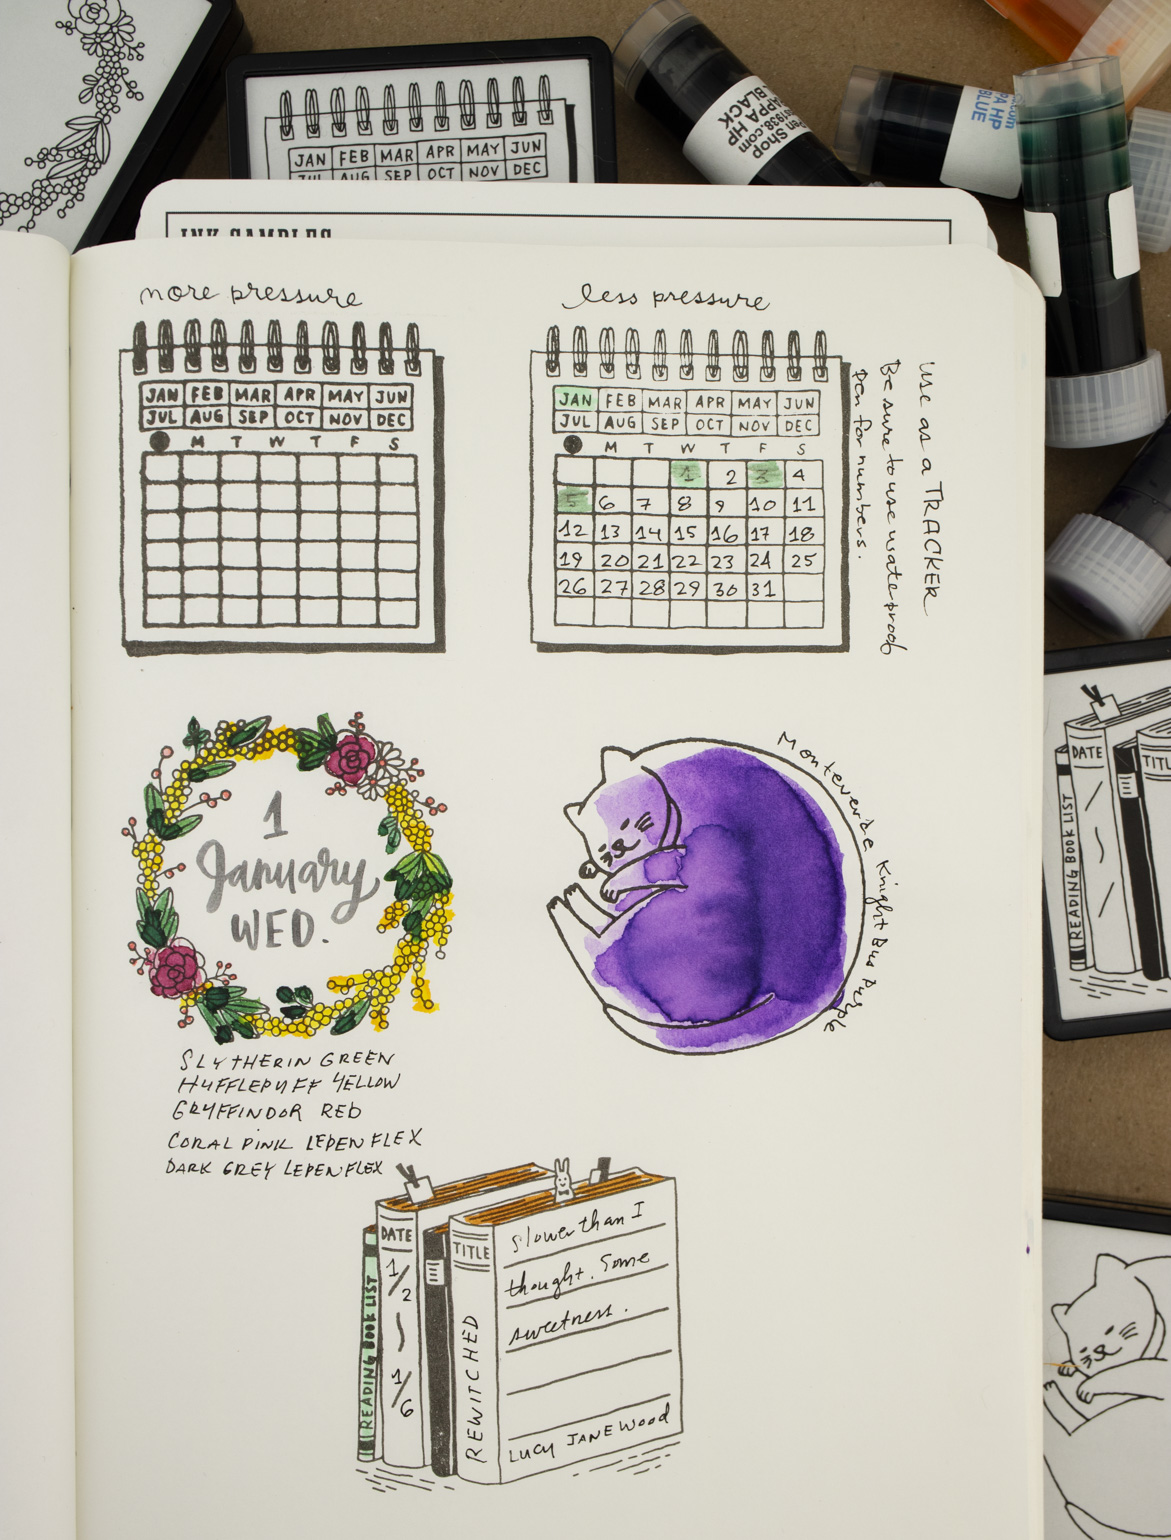 JAN FEB MAR APR MAY JUN
JUL AUG SEP OCT NOV DEC
Shop
1938.com
APPA HP
BLACK
.com
PA HP
BLUE
INK SAMPLES
more pressure
JAN FEB MAR APR MAY JUN
JUL AUG SEP OCT NOV DEC
M T W T F S
less pressure
JAN FEB MAR APR MAY JUN
JUL AUG SEP OCT NOV DEC
M T W T F S
1 2 3 4
5 6 7 8 9 10 11
12 13 14 15 16 17 18
19 20 21 22 23 24 25
26 27 28 29 30 31
Use as a TRACKER
Be sure to use waterproof
pen for numbers.
1
January
WED.
SLYTHERIN GREEN
HUFFLEPUFF YELLOW
GRYFFINDOR RED
CORAL PINK LEPENFLEX
DARK GREY LEPENFLEX
Monteverde Knight Bus Purple
READING BOOK LIST
DATE
1/2
1/6
TITLE
REWITCHED
Slower than I
thought. Some
sweetness.
LUCY JANE WOOD
READING BOOK LIST
DATE
TITL